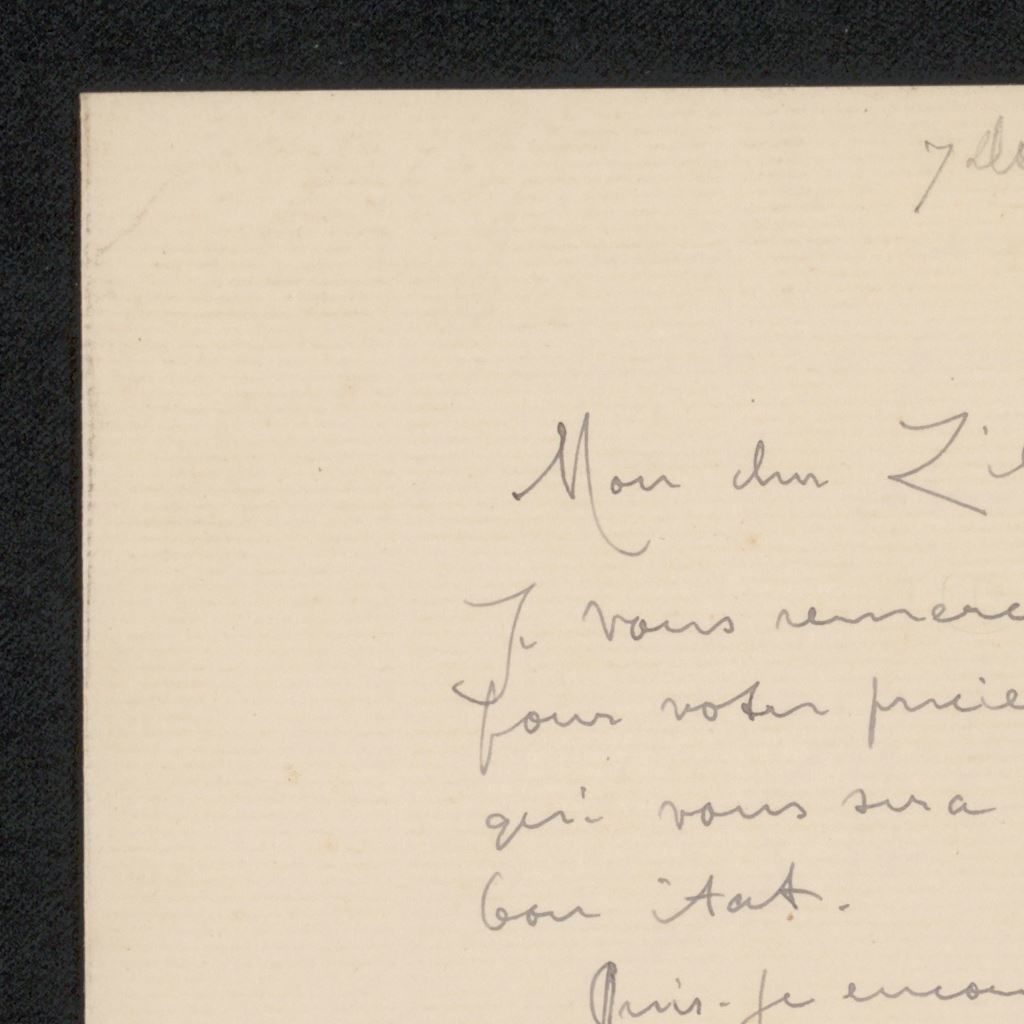 7
Mon cher Zil
Je vous remerc
pour votre précie
qui vous sera
bon état.
Puis-je encou